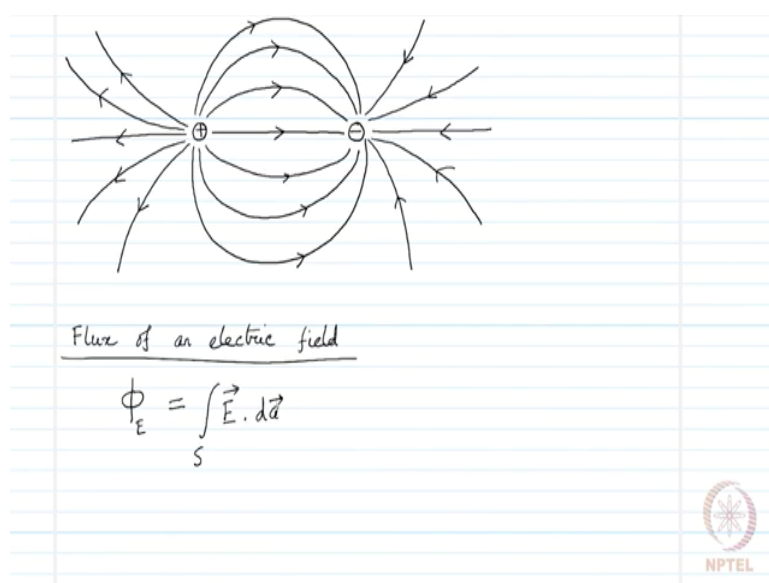 + −
Flux of an electric field
ϕ_E = ∫_S E⃗ . da⃗
NPTEL